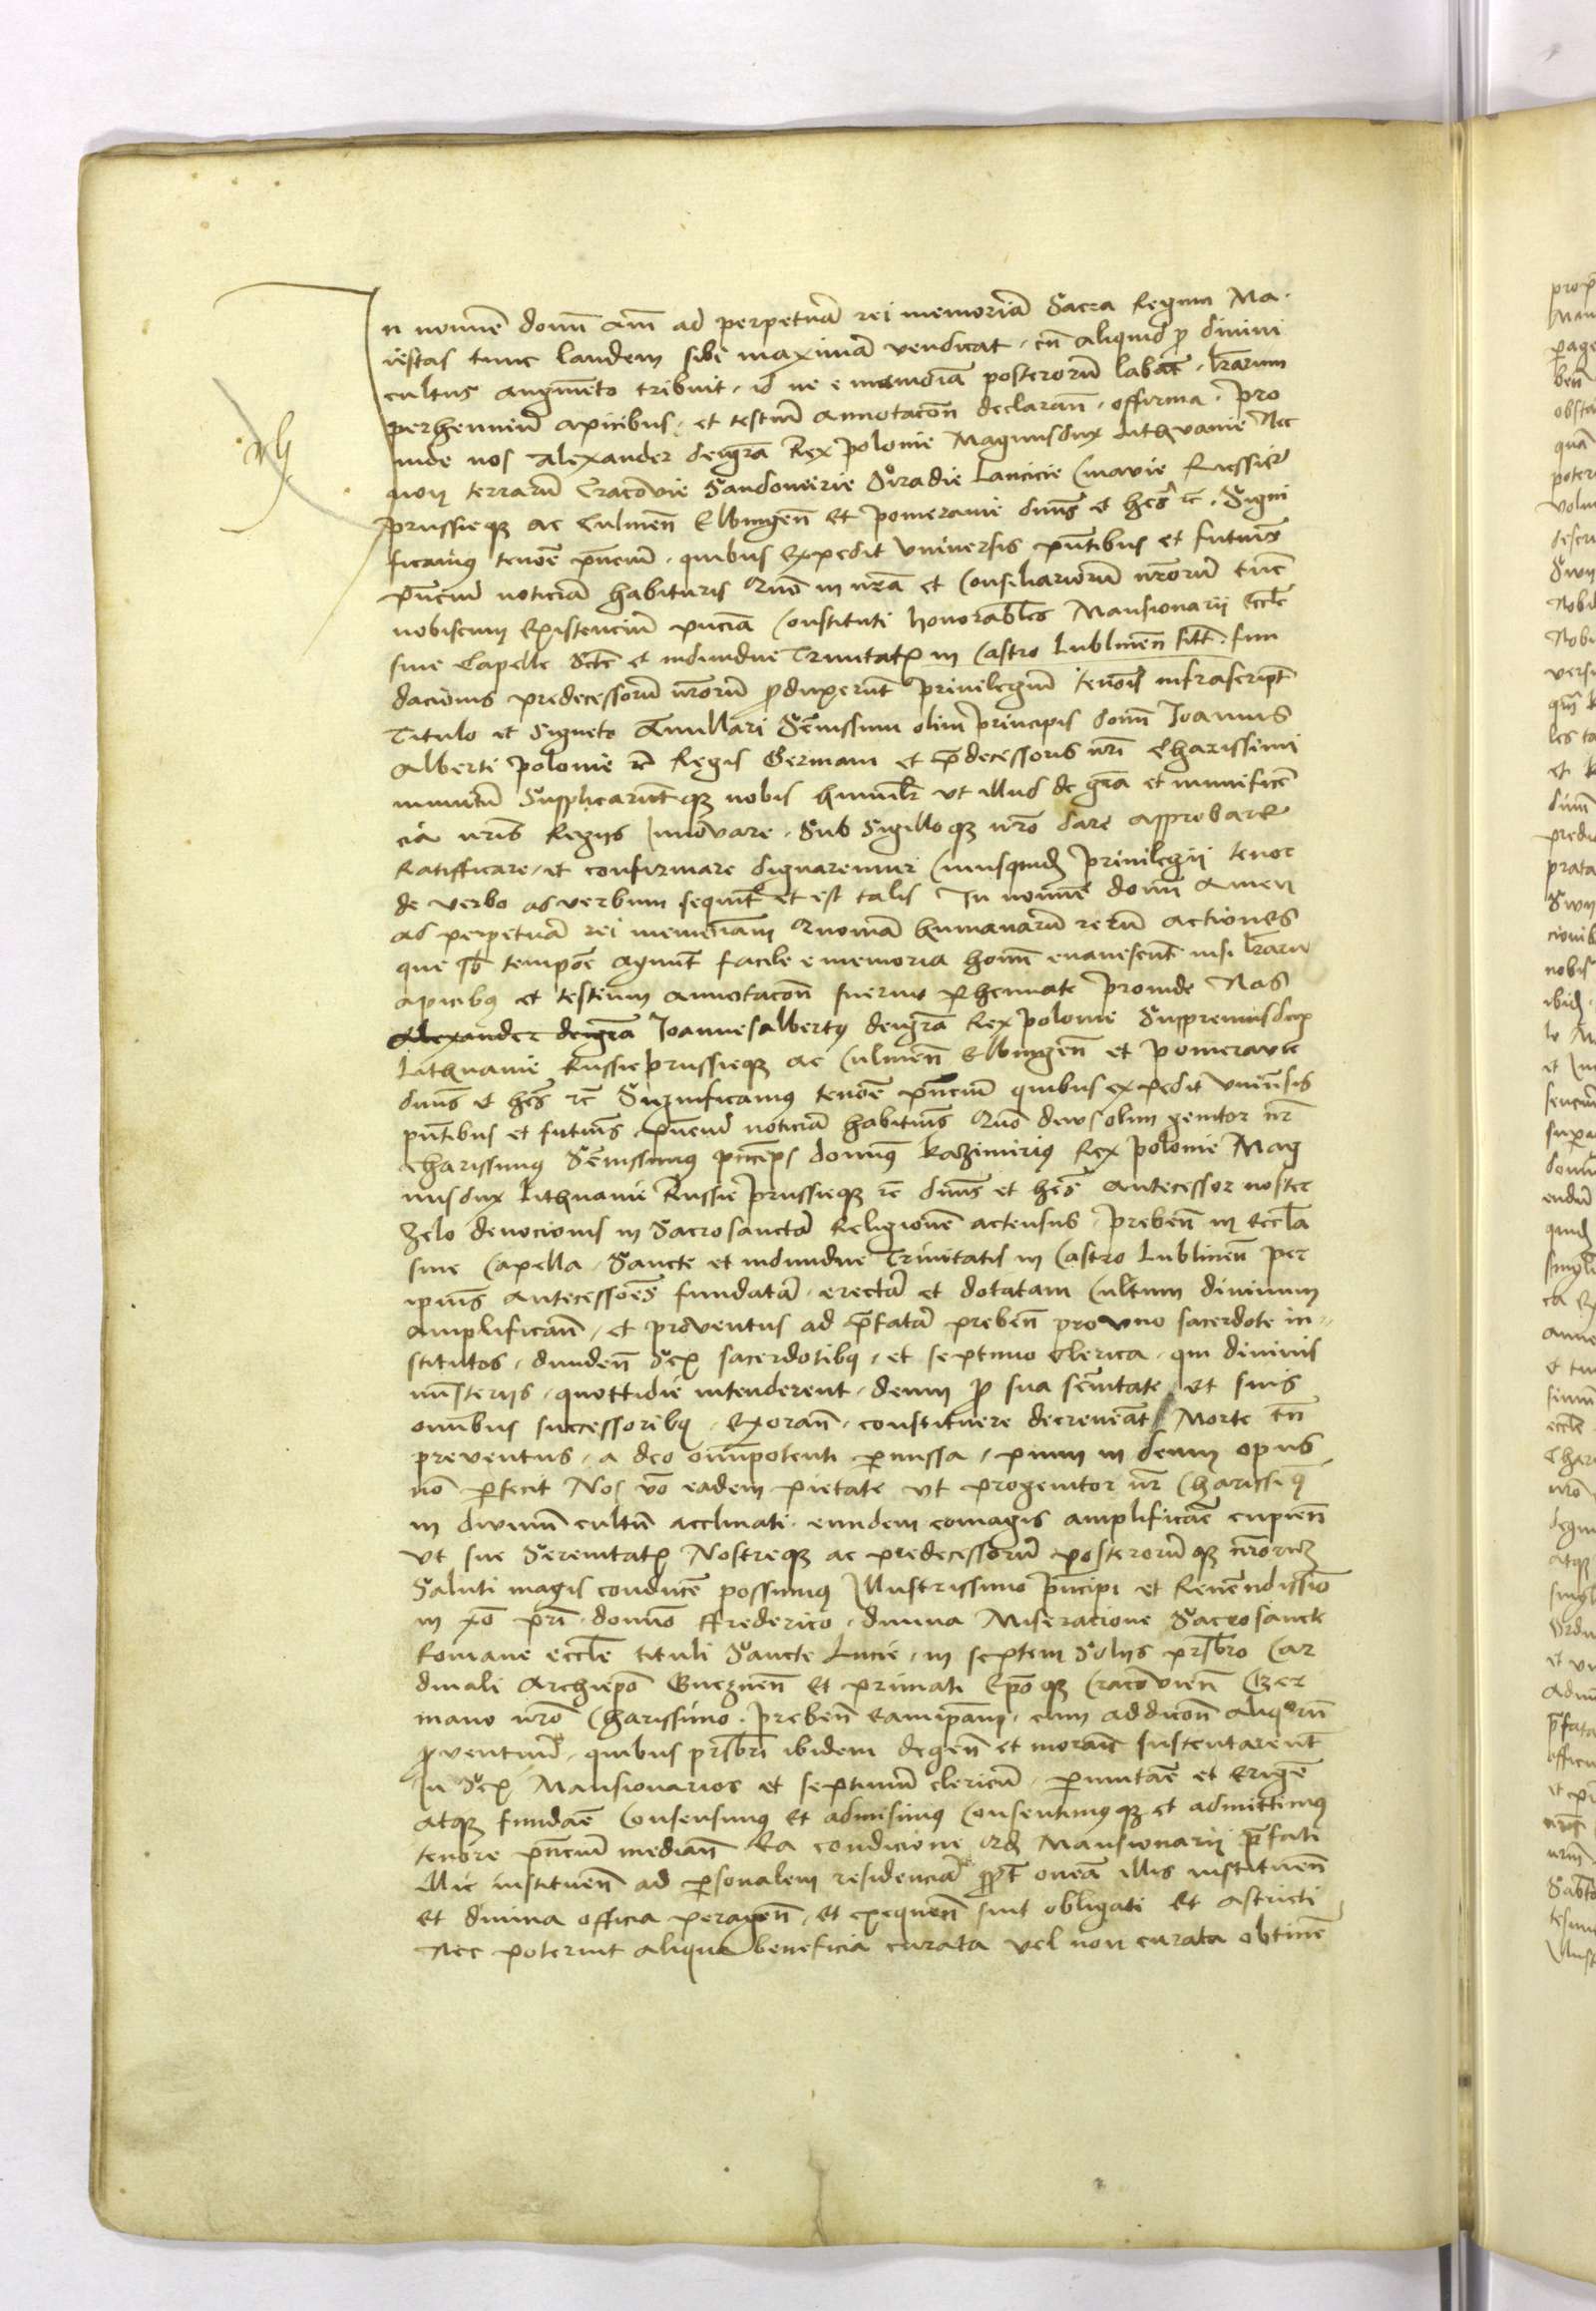 In nomine domini am̄ ad perpetuā rei memoriā Sacra Regum Ma-
iestas tunc laudem sibi maximā vendicat, cū aliquid pro divini
cultus augmēto tribuit, id ne e memoriā posterorū labat, lrarum
perhenniū apicibus, et testiū annotacōn declaran̄, offirma. Pro
inde nos Alexander dei grā Rex Polonie Magnusdux Lithvanie Nec
non terrarū Cracovie Sandomirie Siradie Lancicie Cuiavie Russie
Prussieqȝ ac Culmen̄ Elbingen̄ et Pomeranie dnūs et hēs rc̄. Signi
ficamus tenōe pn̄ciū, quibus expedit Universis pn̄tibus et futuris
pn̄ciū noticiā habituris Quō in nrā et Consiliariorū nrōrū tūc
nobiscum existenciū pn̄ciā Constituti honorabiles Mansionarii Eccle
sive Capelle Scte et individue Trinitatꝭ in Castro Lublinen̄ sitē, fun
dacionis predecessorū nrōrū produxerūt Privilegiū tenōis infrascript
Titulo et Signeto Anullari Serenissimi olim Principis domī Joannis
Alberti Polonie rc̄ Regis Germani et prēdecessoris nrī Charissimi
munitū Supplicarūtqȝ nobis humilr ut illud de grā et munificē
cia nrīs Regiis Innovare, Sub Sigilloqȝ nrō dare approbare
Ratifficare, et confirmare dignaremur Cuiusquidē Privilegii tenor
de verbo ad verbum sequitr et est talis In nomine domī Amen
ad perpetuā rei memoriam Quoniā humanarū rerū actiones
que sb tempōe agunt facile e memoria homī evanescūt nisi lrarū
apicibꝰ et testium annotacōn fuerint perhennate Proinde Nos
Alexander dei grā Joannes albertꝰ dei grā Rex Polonie Supremusdux
Lithuanie Russie Prussieqȝ ac Culmen̄ Elbingen̄ et Pomeranie
dnūs et hēs rc̄ Significamus tenōe pn̄ciū quibus expedit Universis
pn̄tibus et futuris, pn̄ciū noticiā habituris Quō divus olim genitor nr̄
Charissimus Serenissimus princeps dominus Kazimirus Rex Polonie Mag
nusdux Lithuanie Russie Prussieqȝ rc̄ dnūs et hēs antecessor noster
Zelo devocionis in Sacrosanctā Religionē accensus, Preben̄ in Eccla
sive Capella, Sancte et individue Trinitatis in Castro Lublinen̄ Per
ipius Antecessoēs fundatā, erectā et dotatam Cultum divinum
amplifican̄, et proventus ad prēfatā preben̄ pro uno sacerdote in-
stitutos, dividen̄ Sex sacerdotibꝰ, et septimo Clerico, qui divinis
misteriis, quottidie intenderent, deum pro sua Serenitate, et suis
omibus successoribꝰ, exoran̄, constituere decreverat, Morte tn̄
preventus, a deo omipotenti permissa, pium in deum opus
nō perfecit Nos vo eadem pietate ut progenitor nr̄ Charissiꝰ
in divinū cultū acclinati, eundem eomagis amplificaē cupien̄
Ut sue Serenitatꝭ Nostreqȝ ac predecessorū posterorūqȝ nrōrū
Saluti magis conducē possimus Illustrissimo Principi et Reverendissiō
in xpō pri, domīo ffrederico, divina Miseratione Sacrosancte
Romane eccle tituli Sancte Lucie, in septem Soliis prsbro Car
dinali Archiepō Gneznen̄ et primati Epōqȝ Cracovien̄ Ger
mano nrō Charissimo, Preben̄ eamipām, cum addicōn aliqrū
proventuū, quibus prsbri ibidem degen̄ et moran̄ sustentarent
In Sex Mansionarios et septimū clericū, permutaē et Erigē
atqȝ fundaē Consensimus et admisimus Consentimusqȝ et admittimus
tenore pn̄ciū median̄ Ea condicione qd Mansionarii prēfati
illic instituen̄ ad personalem residenciā propt onera illis instituen̄
et divina officia peragen̄, et exequen̄ sint obligati et astricti
Nec poterint aliqua beneficia curata vel non curata obtinē